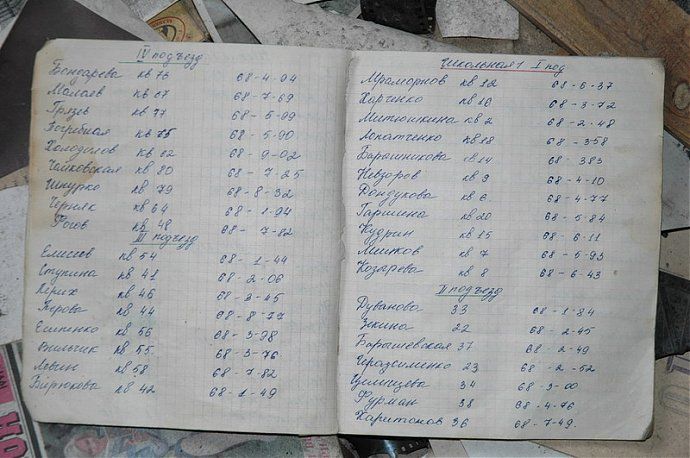 IV подъезд
Бондарева кв 76 68-4-04
Малаев кв 67 68-7-69
Грязев кв 77 68-5-09
Погребная кв 75 68-5-90
Холодилов кв 62 68-9-02
Чайковская кв 80 68-7-25
Шнурко кв 79 68-8-32
Черняк кв 64 68-1-94
Рогов кв 48 68-7-82
III подъезд
Елисеев кв 54 68-1-44
Ступина кв 41 68-2-06
кв 46 68-3-45
кв 44 68-8-77
Есипенко кв 56 68-3-98
Вильчик кв 55 68-3-76
Левин кв 58 68-7-82
Бирюкова кв 42 68-1-49
Школьная 1 I под
Мраморнов кв 12 68-6-37
Харченко кв 16 68-3-72
Митюшкина кв 2 68-2-48
Лопатченко кв 18 68-358
Барашникова кв 14 68-383
Невзоров кв 9 68-4-10
Дондукова кв 6 68-4-77
Гаршина кв 20 68-5-84
Кудрин кв 15 68-6-11
кв 7 68-5-93
Козарева кв 8 68-6-43
II подъезд
Дуванова 33 68-1-84
Зюкина 22 68-2-45
Барышевская 37 68-2-49
Герасименко 23 68-2-52
34 68-3-00
Фурман 38 68-4-76
Харитонов 36 68-7-49.